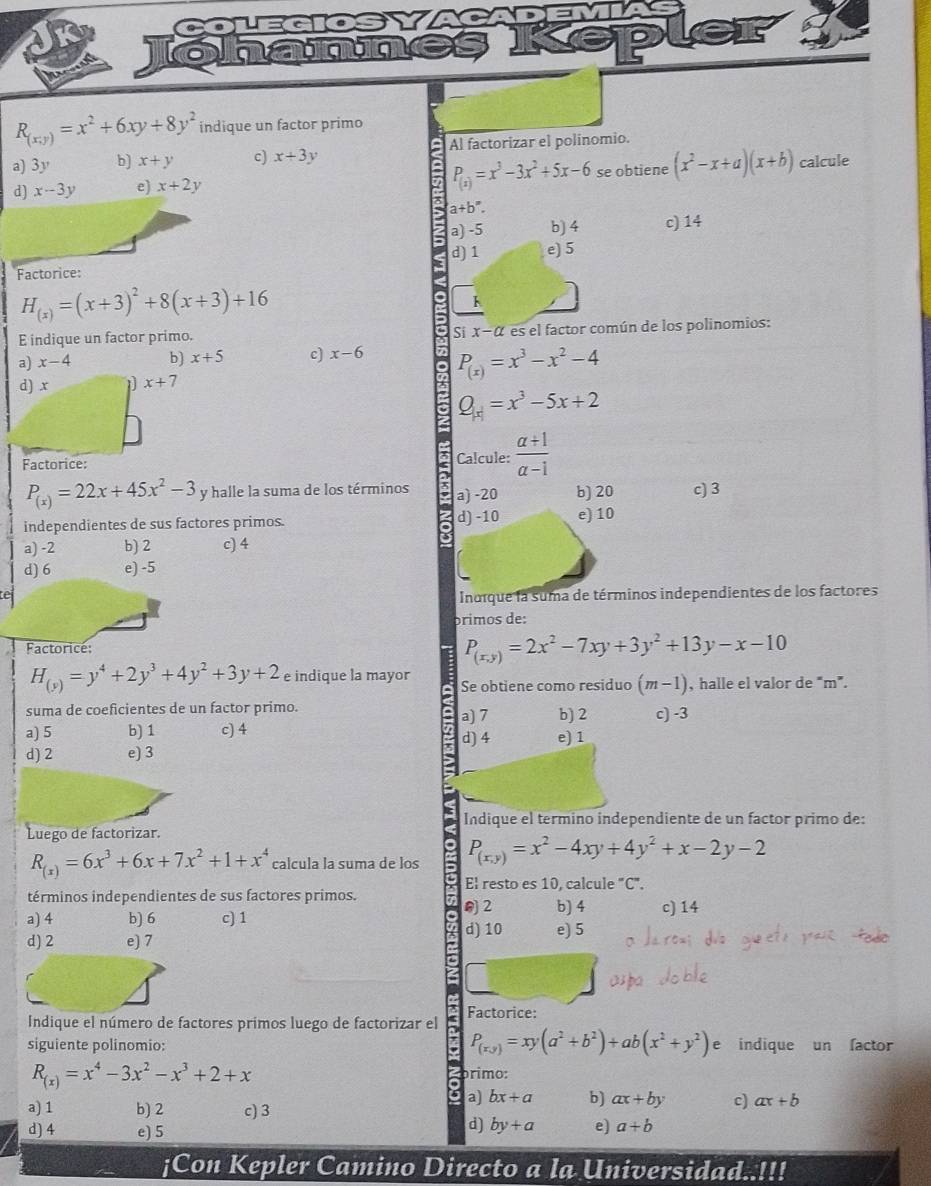 COLEGIOS Y ACADEMIAS
Johannes Kepler
JK
R_(x;y) = x² + 6xy + 8y² indique un factor primo
a) 3y b) x + y c) x + 3y
d) x - 3y e) x + 2y
Factorice:
H_(x) = (x + 3)² + 8(x + 3) + 16
E indique un factor primo.
a) x - 4 b) x + 5 c) x - 6
d) x ) x + 7
Factorice:
P_(x) = 22x + 45x² - 3 y halle la suma de los términos
independientes de sus factores primos.
a) -2 b) 2 c) 4
d) 6 e) -5
Factorice:
H_(y) = y⁴ + 2y³ + 4y² + 3y + 2 e indique la mayor
suma de coeficientes de un factor primo.
a) 5 b) 1 c) 4
d) 2 e) 3
Luego de factorizar.
R_(x) = 6x³ + 6x + 7x² + 1 + x⁴ calcula la suma de los
términos independientes de sus factores primos.
a) 4 b) 6 c) 1
d) 2 e) 7
Indique el número de factores primos luego de factorizar el
siguiente polinomio:
R_(x) = x⁴ - 3x² - x³ + 2 + x
a) 1 b) 2 c) 3
d) 4 e) 5
¡CON KEPLER INGRESO SEGURO A LA UNIVERSIDAD........!
Al factorizar el polinomio.
P_(x) = x³ - 3x² + 5x - 6 se obtiene (x² - x + a)(x + b) calcule
a+b".
a) -5 b) 4 c) 14
d) 1 e) 5
Si x - α es el factor común de los polinomios:
P_(x) = x³ - x² - 4
Q_|x| = x³ - 5x + 2
Calcule: (α + 1)/(α - 1)
a) -20 b) 20 c) 3
d) -10 e) 10
Indique la suma de términos independientes de los factores
primos de:
P_(x,y) = 2x² - 7xy + 3y² + 13y - x - 10
Se obtiene como residuo (m - 1), halle el valor de "m".
a) 7 b) 2 c) -3
d) 4 e) 1
Indique el termino independiente de un factor primo de:
P_(x,y) = x² - 4xy + 4y² + x - 2y - 2
El resto es 10, calcule "C".
a) 2 b) 4 c) 14
d) 10 e) 5
aspa doble
Factorice:
P_(x,y) = xy(a² + b²) + ab(x² + y²) e indique un factor
primo:
a) bx + a b) ax + by c) ax + b
d) by + a e) a + b
¡Con Kepler Camino Directo a la Universidad..!!!